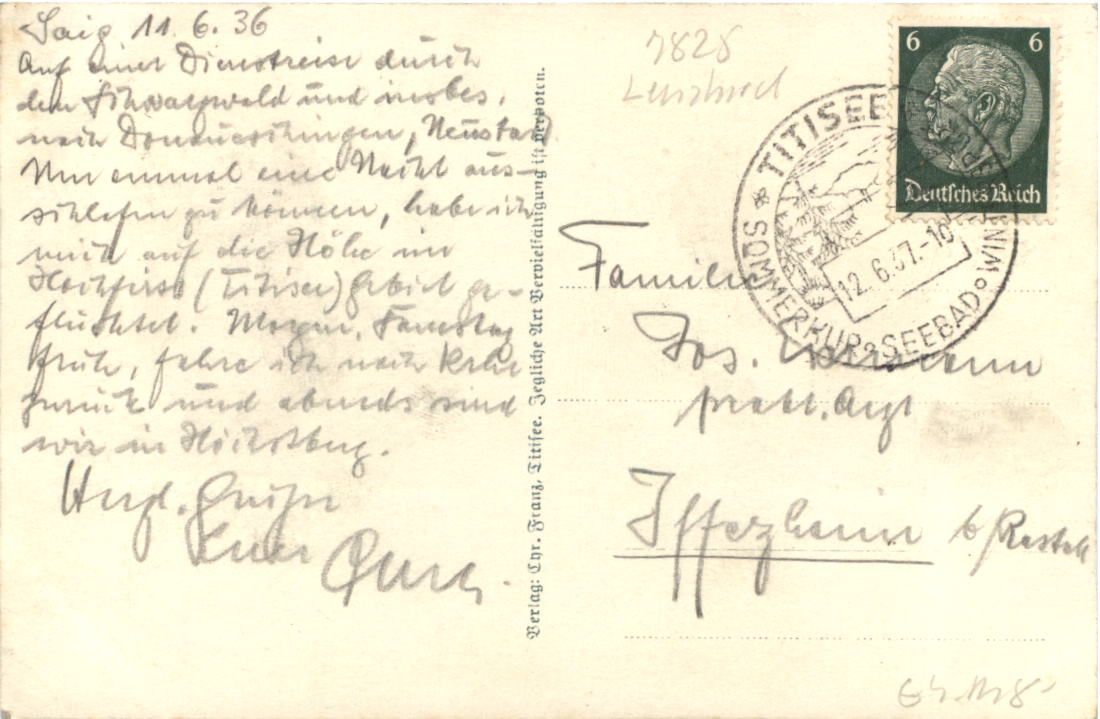 Saig 11.6.36
Auf einer Dienstreise durch
den Schwarzwald und insbes.
nach Donaueschingen, Neustadt
Nur einmal eine Nacht aus-
schlafen zu können, habe ich
mich auf die Höhe im
Hochfirst (Titisee) Gebiet ge-
flüchtet. Morgen, Samstag
früh, fahre ich nach
zurück und abends sind
wir in
Herzl. Grüße
Euer
Verlag: Chr. Franz, Titisee. Jegliche Art Vervielfältigung ist verboten.
7828
6 6
Deutsches Reich
TITISEE
SOMMERKUR SEEBAD WIN
12.6.37.-10
Familie
Jos.
prakt. Arzt
Iffezheim b/Rastatt